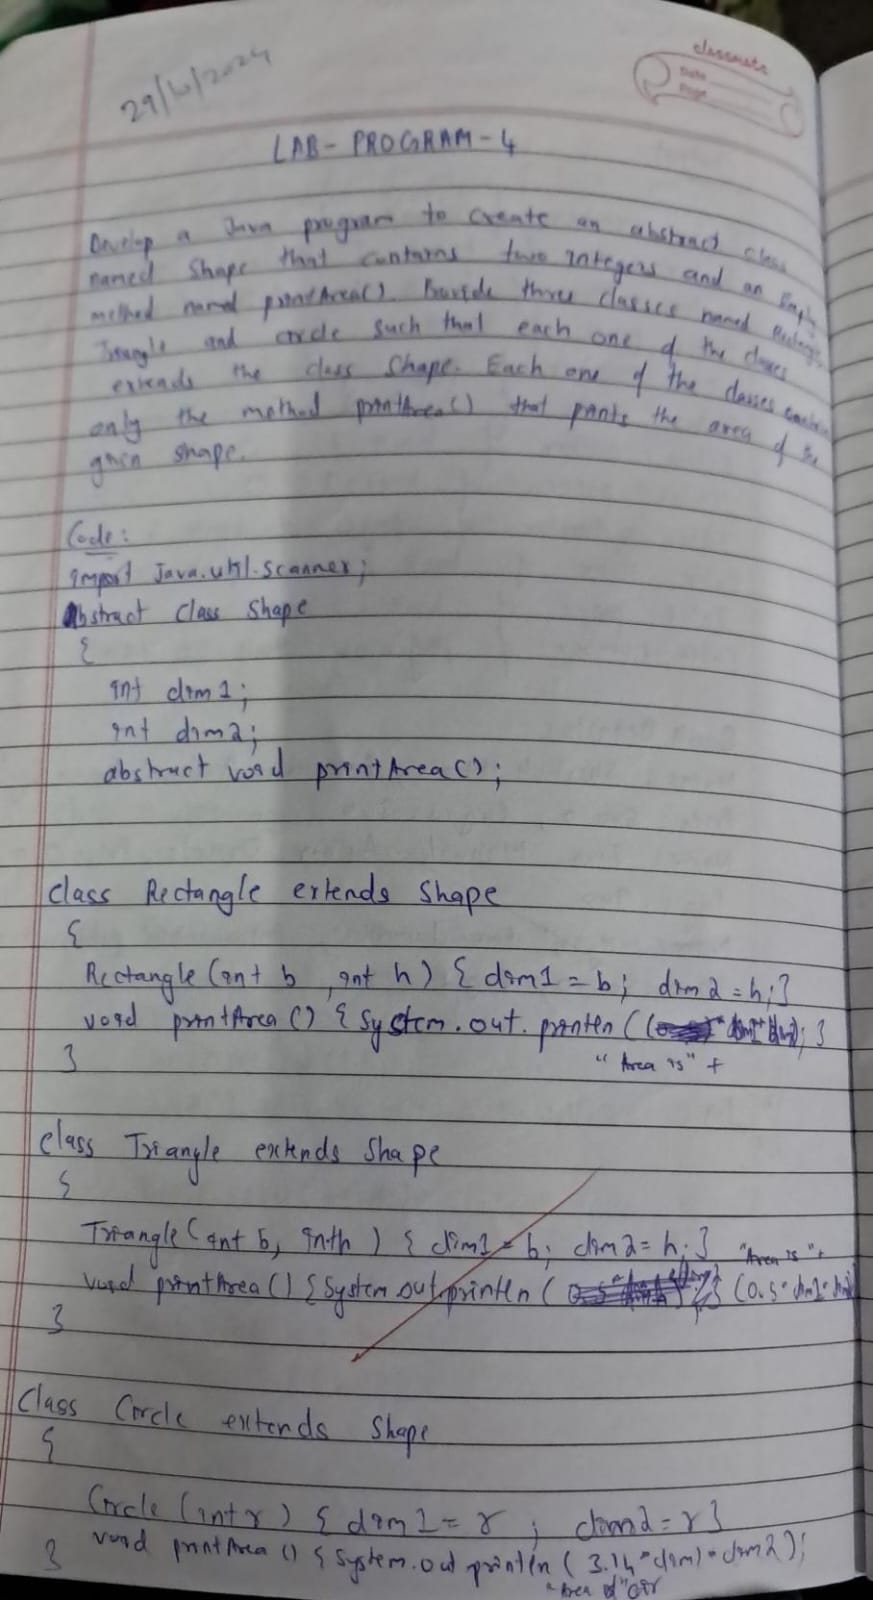 29/10/2024
classmate
Date
Page
LAB - PROGRAM - 4
Develop a Java program to create an abstract class
named Shape that contains two integers and an Empty
method named printArea(). Provide three classes named Rectangle
Triangle and circle such that each one of the classes
extends the class Shape. Each one of the classes contain
only the method printArea() that prints the area of the
given shape.
Code:
import Java.util.Scanner;
Abstract class Shape
{
int dim1;
int dim2;
abstract void printArea();
class Rectangle extends Shape
{
Rectangle (int b, int h) { dim1 = b; dim2 = h; }
void printArea() { System.out.println (( dim1* dim2); }
"Area is" +
}
class Triangle extends Shape
{
Triangle (int b, int h) { dim1 = b; dim2 = h; }
"Area is" +
void printArea() { System.out.println ( (0.5*dim1*dim2)
}
Class Circle extends Shape
{
Circle (int r) { dim1 = r ; dim2 = r }
void printArea () { System.out println ( 3.14*dim1*dim2);
} "Area of" cir